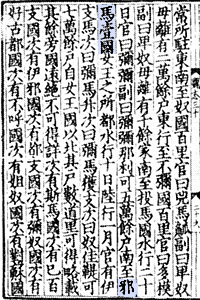 常所駐東南至奴國百里官曰兕馬觚副曰卑奴
母離有二萬餘戶東行至不彌國百里官曰多模
副曰卑奴母離有千餘家南至投馬國水行二十
日官曰彌彌副曰彌彌那利可五萬餘戶南至邪
馬壹國女王之所都水行十日陸行一月官有伊
支馬次曰彌馬升次曰彌馬獲支次曰奴佳鞮可
七萬餘戶自女王國以北其戶數道里可得略載
其餘旁國遠絶不可得詳次有斯馬國次有已百
支國次有伊邪國次有都支國次有彌奴國次有
好古都國次有不呼國次有姐奴國次有對蘇國